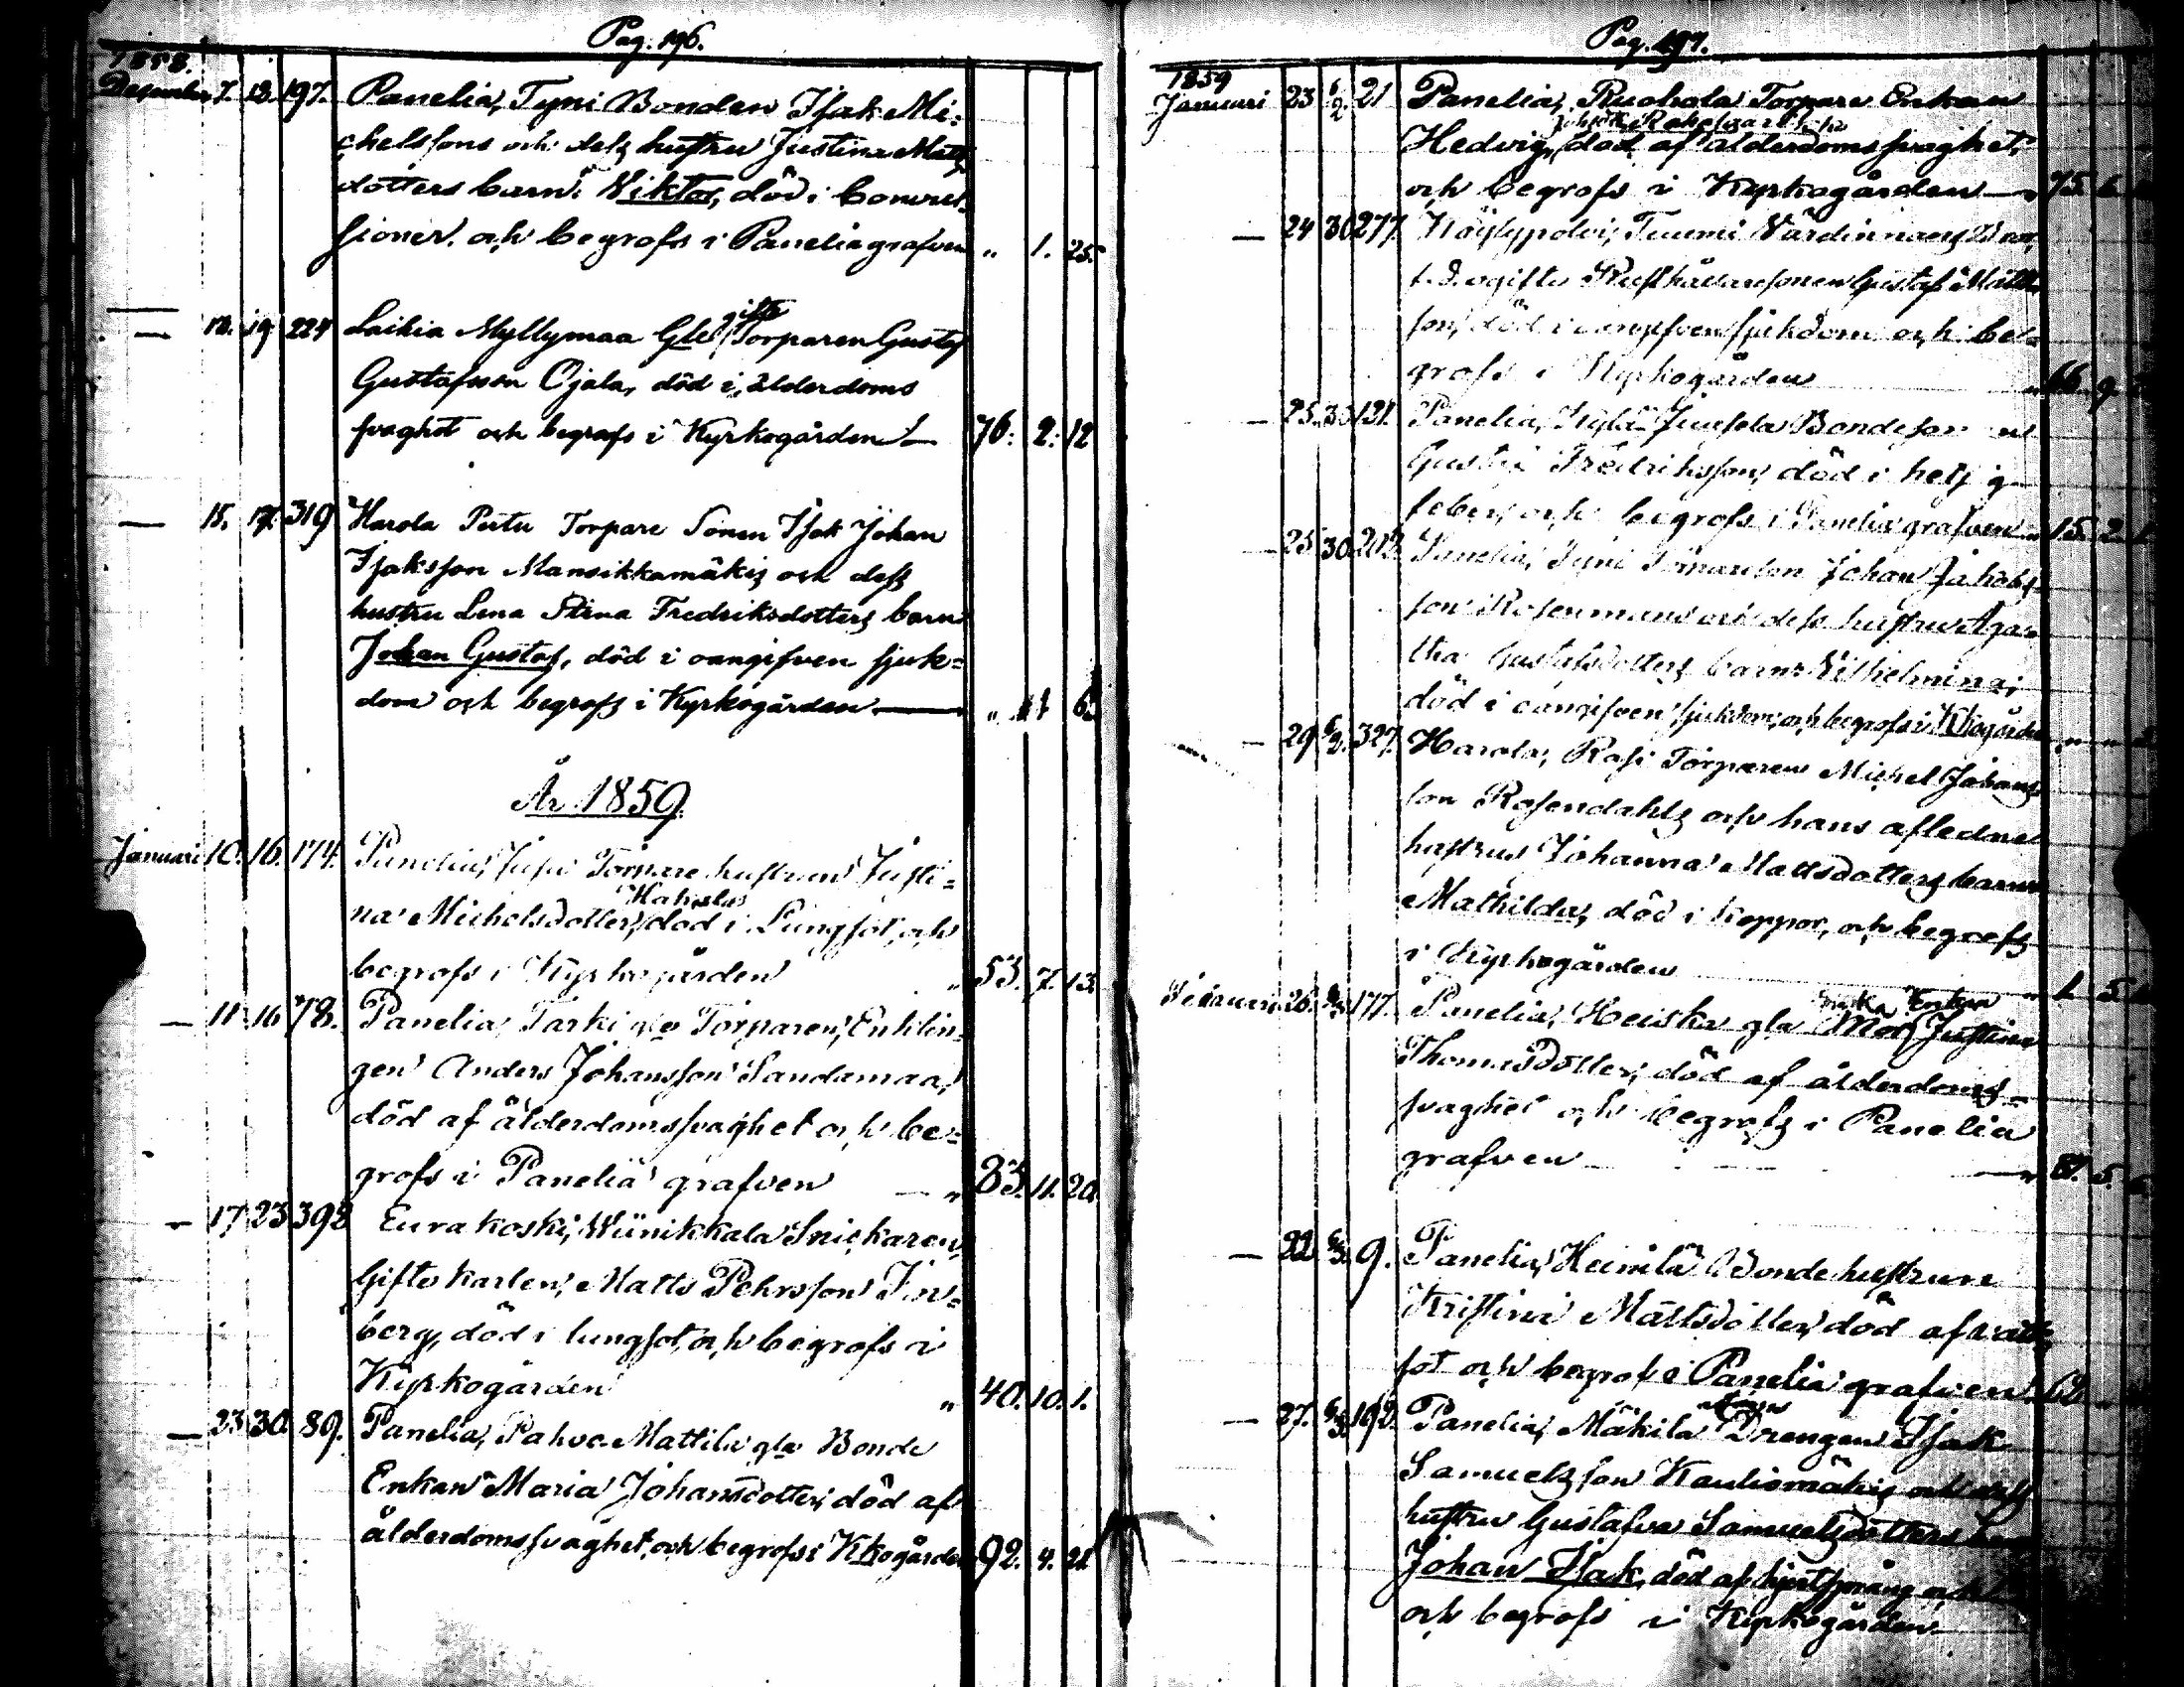 Pag. 196.
1858.
December 7. 13. 197. Panelia, Tyni Bonden Isak Mi=
chelssons och dess hustru Justina Matts
dotters barn: Viktor, död i Convul=
sioner, och begrofs i Panelia grafven " 1. 25.
— 12. 19 224 Laihia Myllymaa Gle gifte Torparen Gustaf
Gustafsson Ojala, död i ålderdoms
svaghet och begrofs i Kyrkogården — 76. 2. 12
— 15. 17. 319 Harola Pertu Torpare Sonen Isak Johan
Isaksson Mansikkamäkis och dess
hustru Lena Stina Fredriksdotters barn
Johan Gustaf, död i oangifven sjuk=
dom och begrofs i Kyrkogården — " 1 6.
År 1859.
Januari 10. 16. 174. Panelia, Torpare hustrun Justi=
na Michelsdotter, död i Lungsot, och
begrofs i Kyrkogården " 53. 7. 13.
— 11. 16 78. Panelia, Tarki gle Torparen, Enklin=
gen Anders Johansson Sandamaa,
död af ålderdomssvaghet och be=
grofs i Panelia grafven — " 83. 11. 20.
— 17 23 392 Eurakoski, Wiinikkala Snickaren,
Gifte Karlen, Matts Pehrsson Fin=
berg, död i lungsot, och begrofs i
Kyrkogården " 40. 10. 1.
— 23 30. 89. Panelia, Pahva Mattila gla Bonde
Enkan Maria Johansdotter, död af
ålderdomssvaghet, och begrofs i Kkogården 92. 4. 21
Pag. 197.
1859
Januari 23 6/2 21 Panelia, Ruohola Torpare Enkan
Hedvig, död af ålderdomssvaghet,
och begrofs i Kyrkogården — " 75. 6.
— 24 30 277. Köylypolvi, Tuomi Värdinnans
f.d. ogifte Rusthållaresonen Gustaf Matts
son, död i oangifven sjukdom och be=
grofs i Kyrkogården " 66. 9.
— 25. 30 121. Panelia, Kylä Juusela Bondeson
Gustaf Fredriksson, död i hetsig
feber, och begrofs i Panelia grafven " 15. 2.
— 25 30. 202. Panelia, Tyni Johan Jakobs
son Rosenmans och dess hustru Aga=
tha Gustafsdotters barn Vilhelmina,
död i oangifven sjukdom, och begrofs i Kkogården " "
— 29 6/2. 327. Harola, Rasi Torparen Michel Johans
son Rosendahls och hans aflidne
hustrus Johanna Mattsdotters barn
Mathilda, död i Koppor, och begrofs
i Kyrkogården " 1 5.
Februari 26. 177. Panelia, Heiska gla Enkan Justina
Thomasdotter, död af ålderdoms=
svaghet och begrofs i Panelia
grafven — " 87. 5.
— 22 6/3. 9. Panelia, Heinilä Bonde hustrun
Kristina Mattsdotter, död af
sot och begrofs i Panelia grafven 62
— 27. 6/3 192. Panelia, Mäkilä Drengen Isak
Samuelsson Kauliomäkis och dess
hustru Gustafva Samuelsdotters barn
Johan Isak, död af och
och begrofs i Kyrkogården